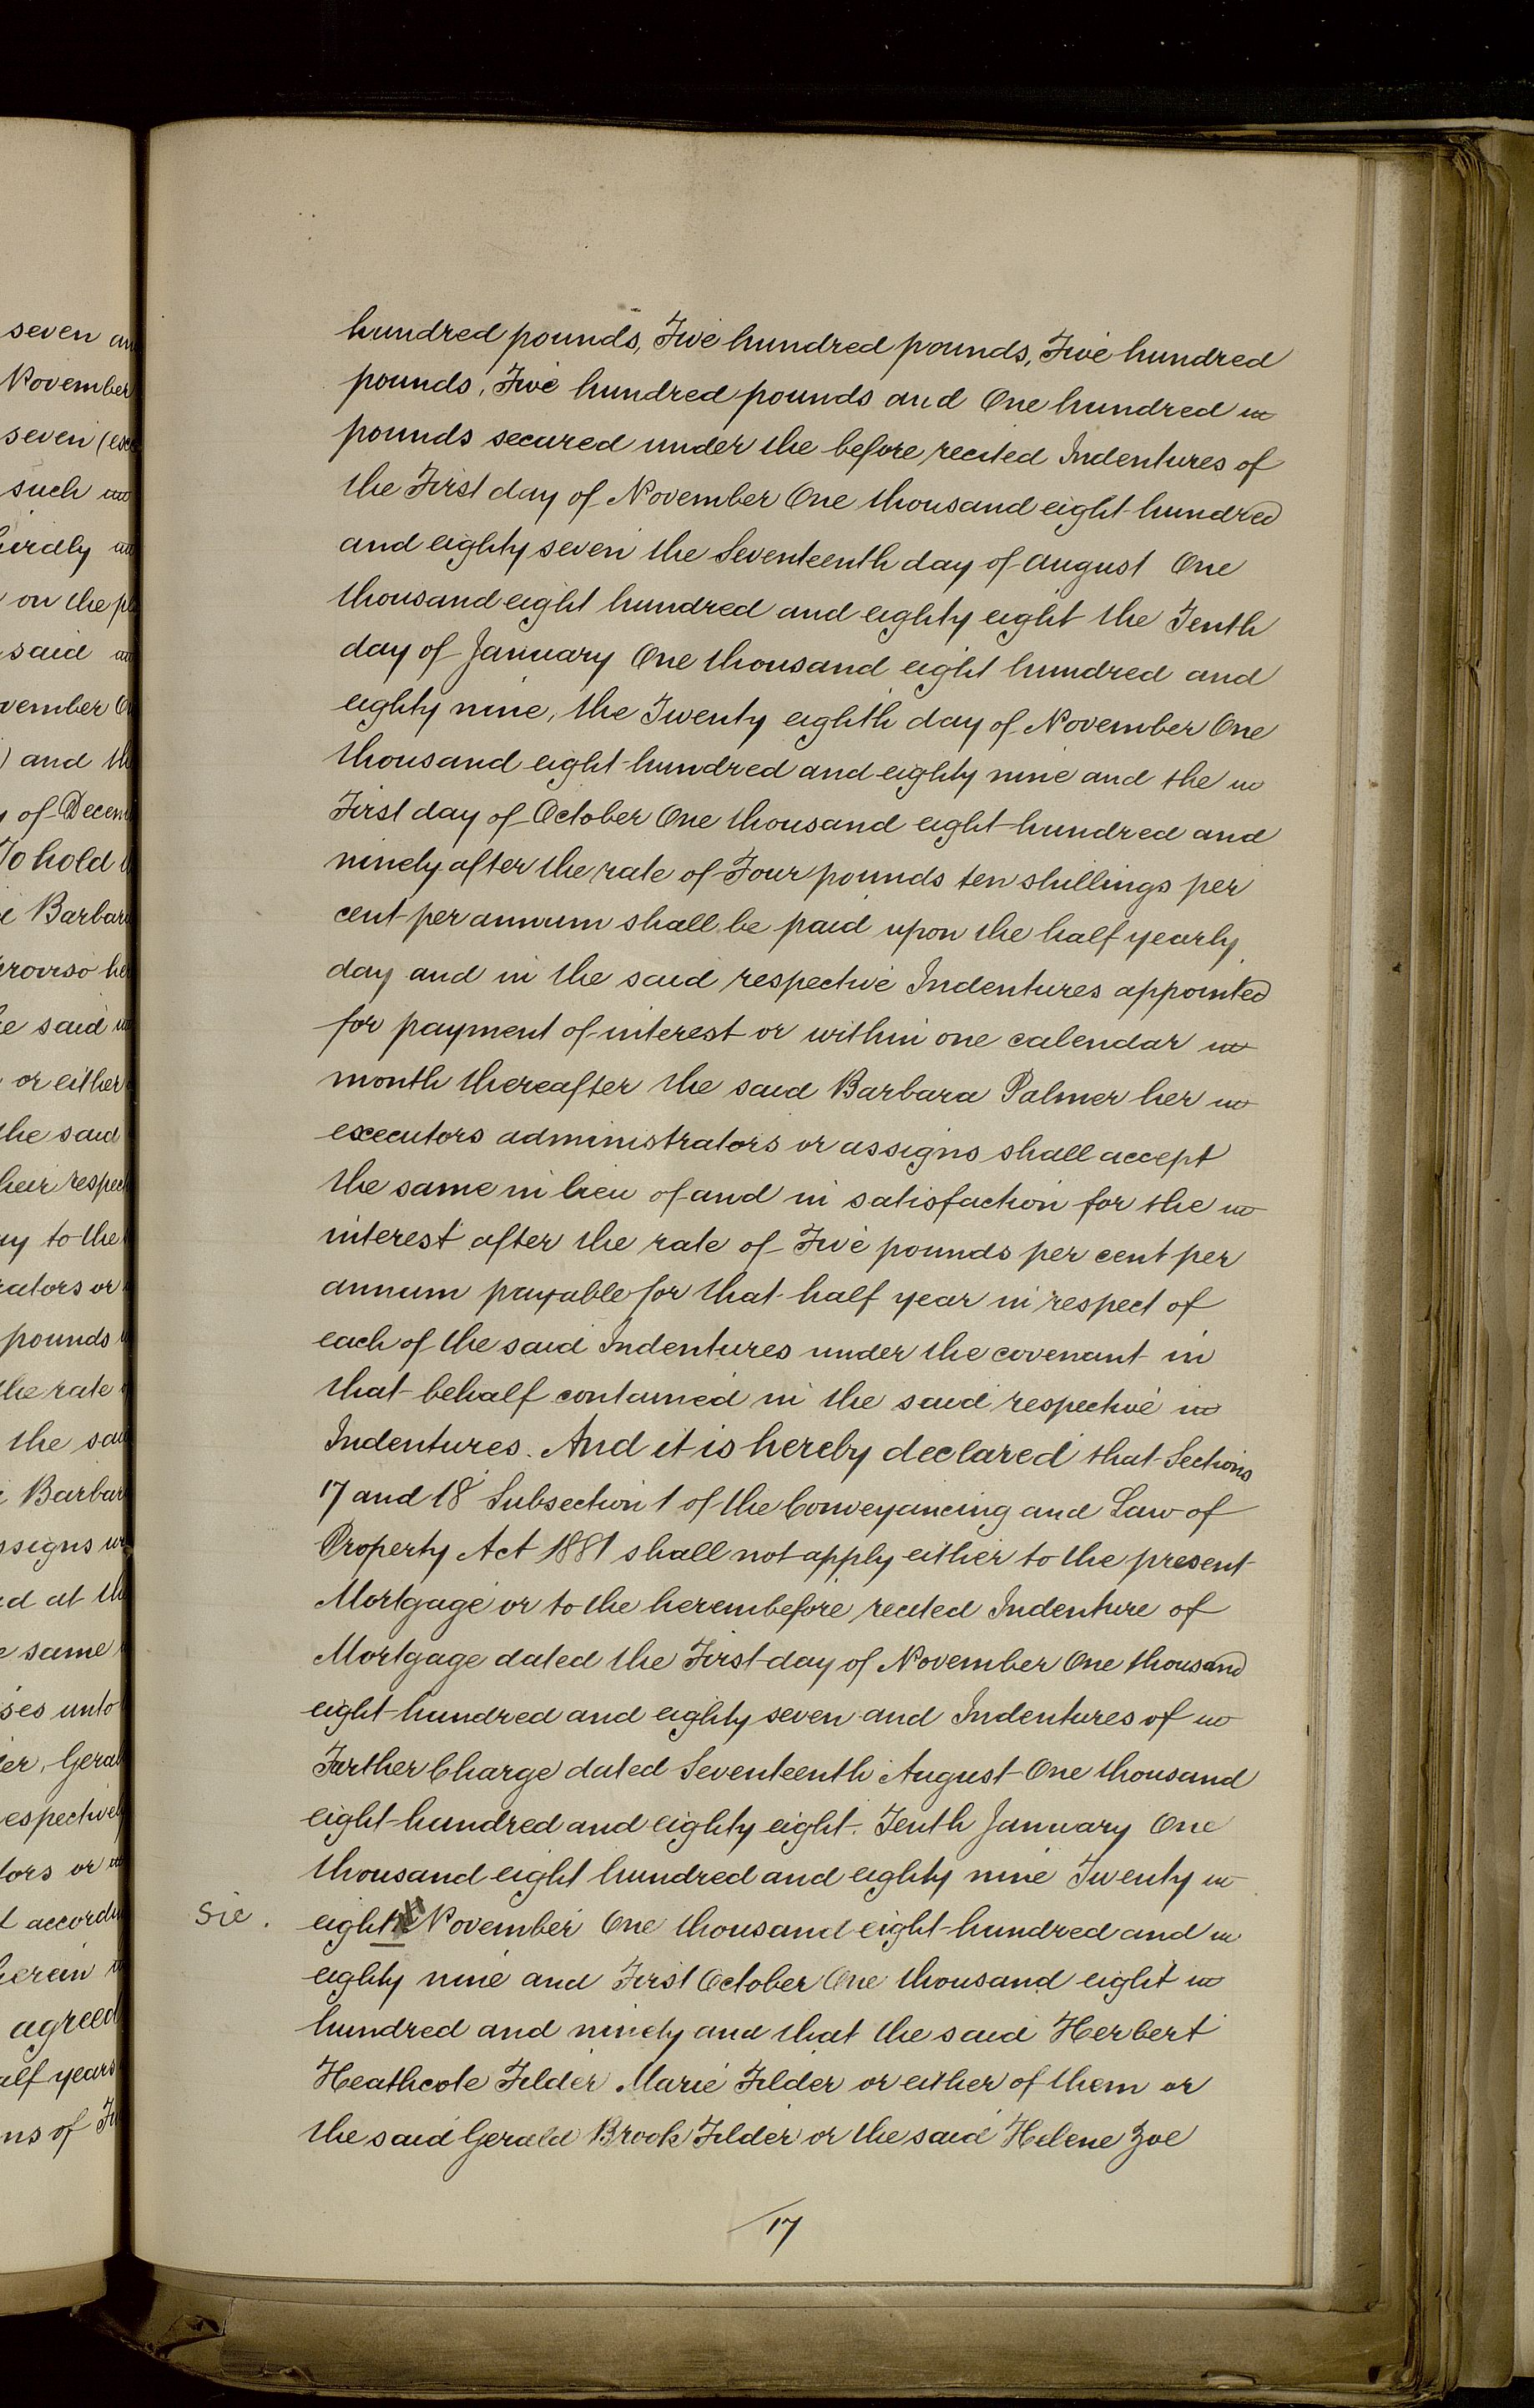 seven
November
seven
such
on the
said
and
of
To hold
Barbar
proviso
said
or either
the said
their
to the
or
pounds
the rate
the
Barbar
at
same
unto
or
herein
agreed
years
of
hundred pounds, Five hundred pounds, Five hundred
pounds, Five hundred pounds and One hundred
pounds secured under the before recited Indentures of
the First day of November One thousand eight hundred
and eighty seven the Seventeenth day of August One
thousand eight hundred and eighty eight the Tenth
day of January One thousand eight hundred and
eighty nine, the Twenty eighth day of November One
thousand eight hundred and eighty nine and the
First day of October One thousand eight hundred and
ninety after the rate of Four pounds ten shillings per
cent per annum shall be paid upon the half yearly
day and in the said respective Indentures appointed
for payment of interest or within one calendar
month thereafter the said Barbara Palmer her
executors administrators or assigns shall accept
the same in lieu of and in satisfaction for the
interest after the rate of Five pounds per cent per
annum payable for that half year in respect of
each of the said Indentures under the covenant in
that behalf contained in the said respective
Indentures. And it is hereby declared that Sections
17 and 18 Subsection 1 of the Conveyancing and Law of
Property Act 1881 shall not apply either to the present
Mortgage or to the hereinbefore recited Indenture of
Mortgage dated the First day of November One thousand
eight hundred and eighty seven and Indentures of
Further Charge dated Seventeenth August One thousand
eight hundred and eighty eight. Tenth January One
thousand eight hundred and eighty nine Twenty
Sic. eight November One thousand eight hundred and
eighty nine and First October One thousand eight
hundred and ninety and that the said Herbert
Heathcote Filder Marie Filder or either of them or
the said Gerald Brook Filder or the said Helene Zoe
17